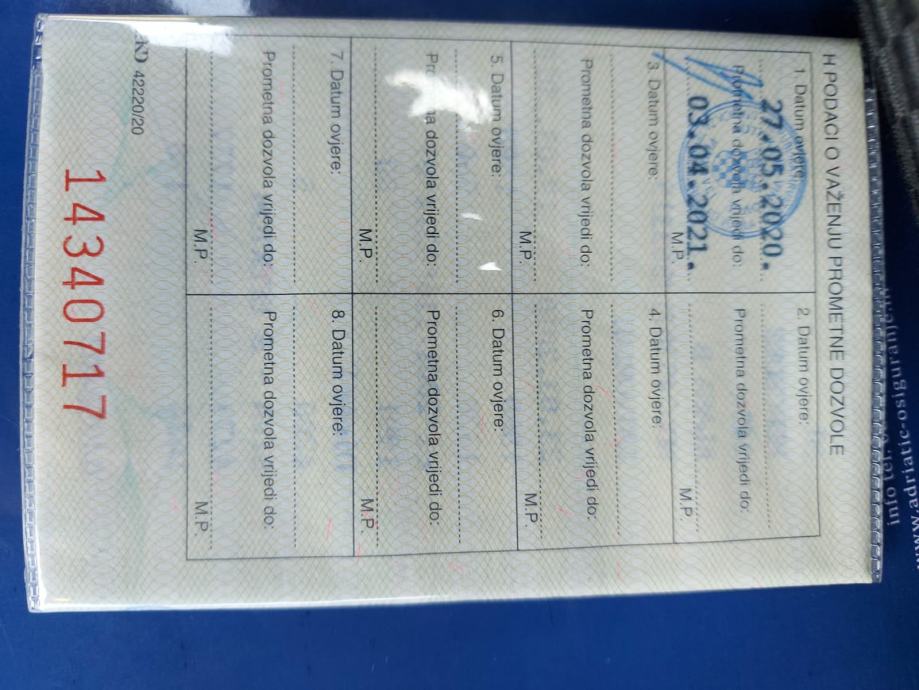 H PODACI O VAŽENJU PROMETNE DOZVOLE
1. Datum ovjere:
27.05.2020.
Prometna dozvola vrijedi do:
03.04.2021.
M.P.
2. Datum ovjere:
Prometna dozvola vrijedi do:
M.P.
3. Datum ovjere:
Prometna dozvola vrijedi do:
M.P.
4. Datum ovjere:
Prometna dozvola vrijedi do:
M.P.
5. Datum ovjere:
dozvola vrijedi do:
M.P.
6. Datum ovjere:
Prometna dozvola vrijedi do:
M.P.
7. Datum ovjere:
Prometna dozvola vrijedi do:
M.P.
8. Datum ovjere:
Prometna dozvola vrijedi do:
M.P.
42220/20
14340717
info tel.